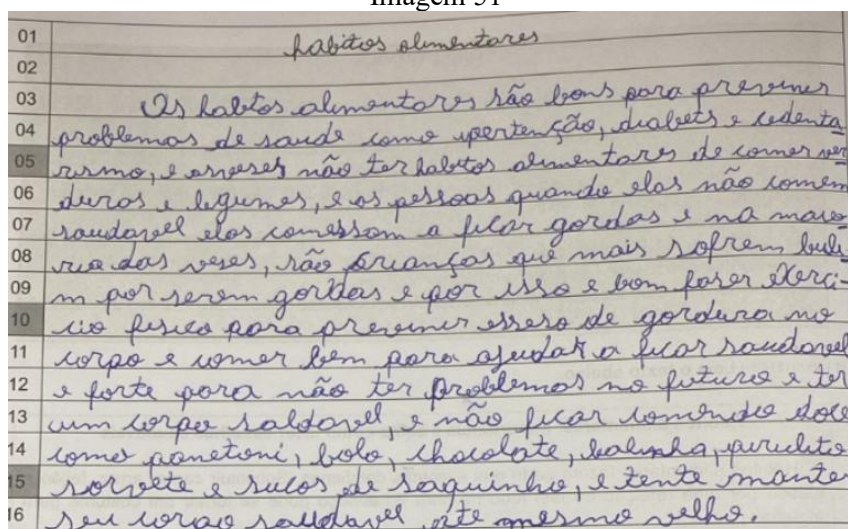 Imagem 51
01 habitos alimentares
02
03 Os habtos alimentares são bons para prevenir
04 problemas de saude como upertenção, diabets e sedenta
05 rismo, e as veses não ter habitos alimentares de comer ver
06 duras e legumes, e as pessoas quando elas não comem
07 saudavel elas comessam a ficar gordas e na maio
08 ria das veses, são crianças que mais sofrem buli
09 m por serem gordas e por isso e bom faser exerci-
10 cio fisico para prevenir esseso de gordura no
11 corpo e comer bem para ajudar a ficar saudavel
12 e forte para não ter problemas no futuro e ter
13 um corpo saldavel, e não ficar comendo doce
14 como panetoni, bolo, chocolate, balinha, pirulito
15 sorvete e sucos de saquinho, e tente manter
16 seu corpo saudavel ate mesmo velho.